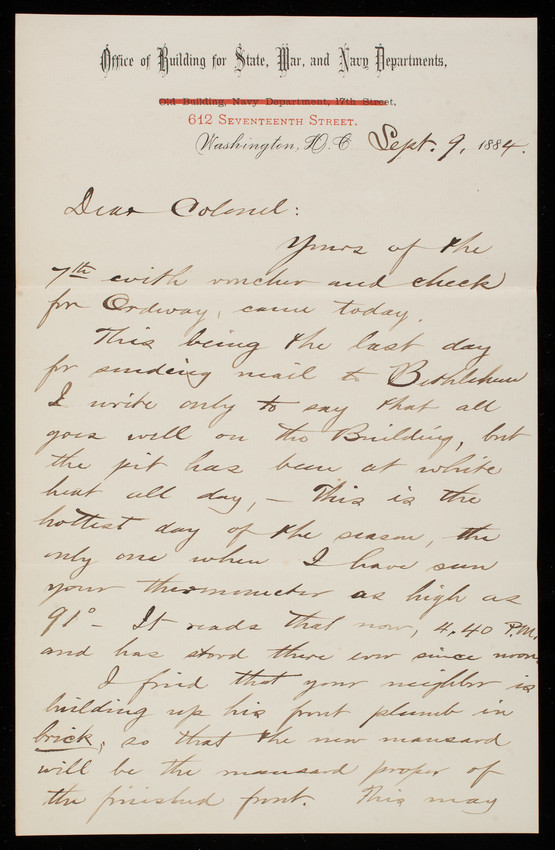 Office of Building for State, War, and Navy Departments,
Old Building, Navy Department, 17th Street,
612 SEVENTEENTH STREET.
Washington, D. C. Sept. 9, 1884.
Dear Colonel:
Yours of the
7th with voucher and check
for Ordway, came today.
This being the last day
for sending mail to Bethlehem
I write only to say that all
goes well on the Building, but
the pit has been at white
heat all day, – This is the
hottest day of the season, the
only one when I have seen
your thermometer as high as
91° – It reads that now, 4.40 P.M.
and has stood there ever since noon.
I find that your neighbor is
building up his front plumb in
brick, so that the new mansard
will be the mansard proper of
the finished front. This may